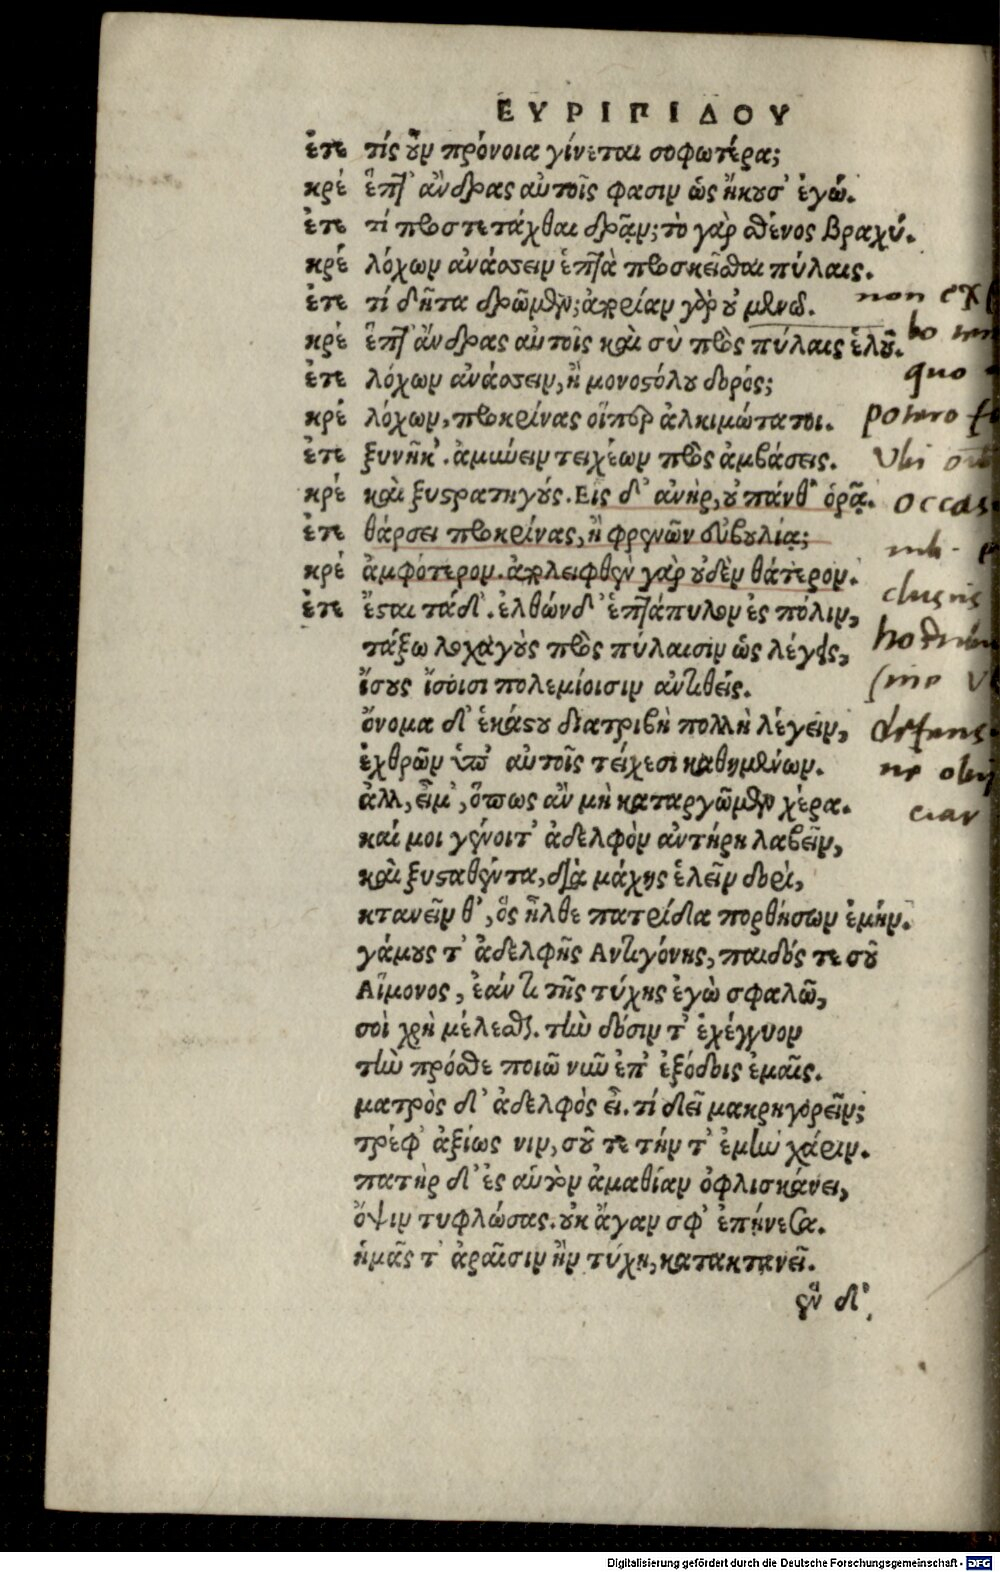 ΕΥΡΙΠΙΔΟΥ
ἐτε τίς οὖν πρόνοια γίνεται σοφωτέρα;
κρέ ἕπτ' ἄνδρας αὐτοῖς φασιν ὡς ἤκουσ' ἐγώ.
ἐτε τί προστετάχθαι δρᾷν; τὸ γὰρ σθένος βραχύ.
κρέ λόχων ἀνάσσειν ἑπτὰ προσκεῖσθαι πύλαις.
ἐτε τί δῆτα δρῶμεν; ἀπορίαν γὰρ οὐ μενῶ.
κρέ ἕπτ' ἄνδρας αὐτοῖς καὶ σὺ πρὸς πύλαις ἑλοῦ.
ἐτε λόχων ἀνάσσειν, ἢ μονοστόλου δορός;
κρέ λόχων, προκρίνας οἵπερ ἀλκιμώτατοι.
ἐτε ξυνῆκ'. ἀμύνειν τειχέων πρὸς ἀμβάσεις.
κρέ καὶ ξυστρατηγούς. Εἷς δ' ἀνὴρ, οὐ πάνθ' ὁρᾷ.
ἐτε θάρσει προκρίνας, ἢ φρενῶν εὐβουλίᾳ;
κρέ ἀμφότερον. ἀπολειφθὲν γὰρ οὐδὲν θάτερον.
ἐτε ἔσται τάδ'. ἐλθὼν δ' ἑπτάπυλον ἐς πόλιν,
τάξω λοχαγοὺς πρὸς πύλαισιν ὡς λέγεις,
ἴσους ἴσοισι πολεμίοισιν ἀντιθείς.
ὄνομα δ' ἑκάστου διατριβὴ πολλὴ λέγειν,
ἐχθρῶν ὑπ' αὐτοῖς τείχεσι καθημένων.
ἀλλ, εἶμ', ὅπως ἂν μὴ καταργῶμεν χέρα.
καί μοι γένοιτ' ἀδελφὸν ἀντήρη λαβεῖν,
καὶ ξυσταθέντα, διὰ μάχης ἑλεῖν δορὶ,
κτανεῖν θ', ὃς ἦλθε πατρίδα πορθήσων ἐμήν.
γάμους τ' ἀδελφῆς Ἀντιγόνης, παιδός τε σοῦ
Αἵμονος, ἐάν τι τῆς τύχης ἐγὼ σφαλῶ,
σοὶ χρὴ μέλεσθαι. τὴν δόσιν τ' ἐχέγγυον
τὴν πρόσθε ποιῶ νῦν ἐπ' ἐξόδοις ἐμαῖς.
ματρὸς δ' ἀδελφὸς εἶ. τί δεῖ μακρηγορεῖν;
τρέφ' ἀξίως νιν, σοῦ τε τήν τ' ἐμὴν χάριν.
πατὴρ δ' ἐς αὑτὸν ἀμαθίαν ὀφλισκάνει,
ὄψιν τυφλώσας. οὐκ ἄγαν σφ' ἐπῄνεσα.
ἡμᾶς τ' ἀραῖσιν ἢν τύχη, κατακτανεῖ.
ἓν δ'
non
quo
potero
Vbi
Digitalisierung gefördert durch die Deutsche Forschungsgemeinschaft - DFG